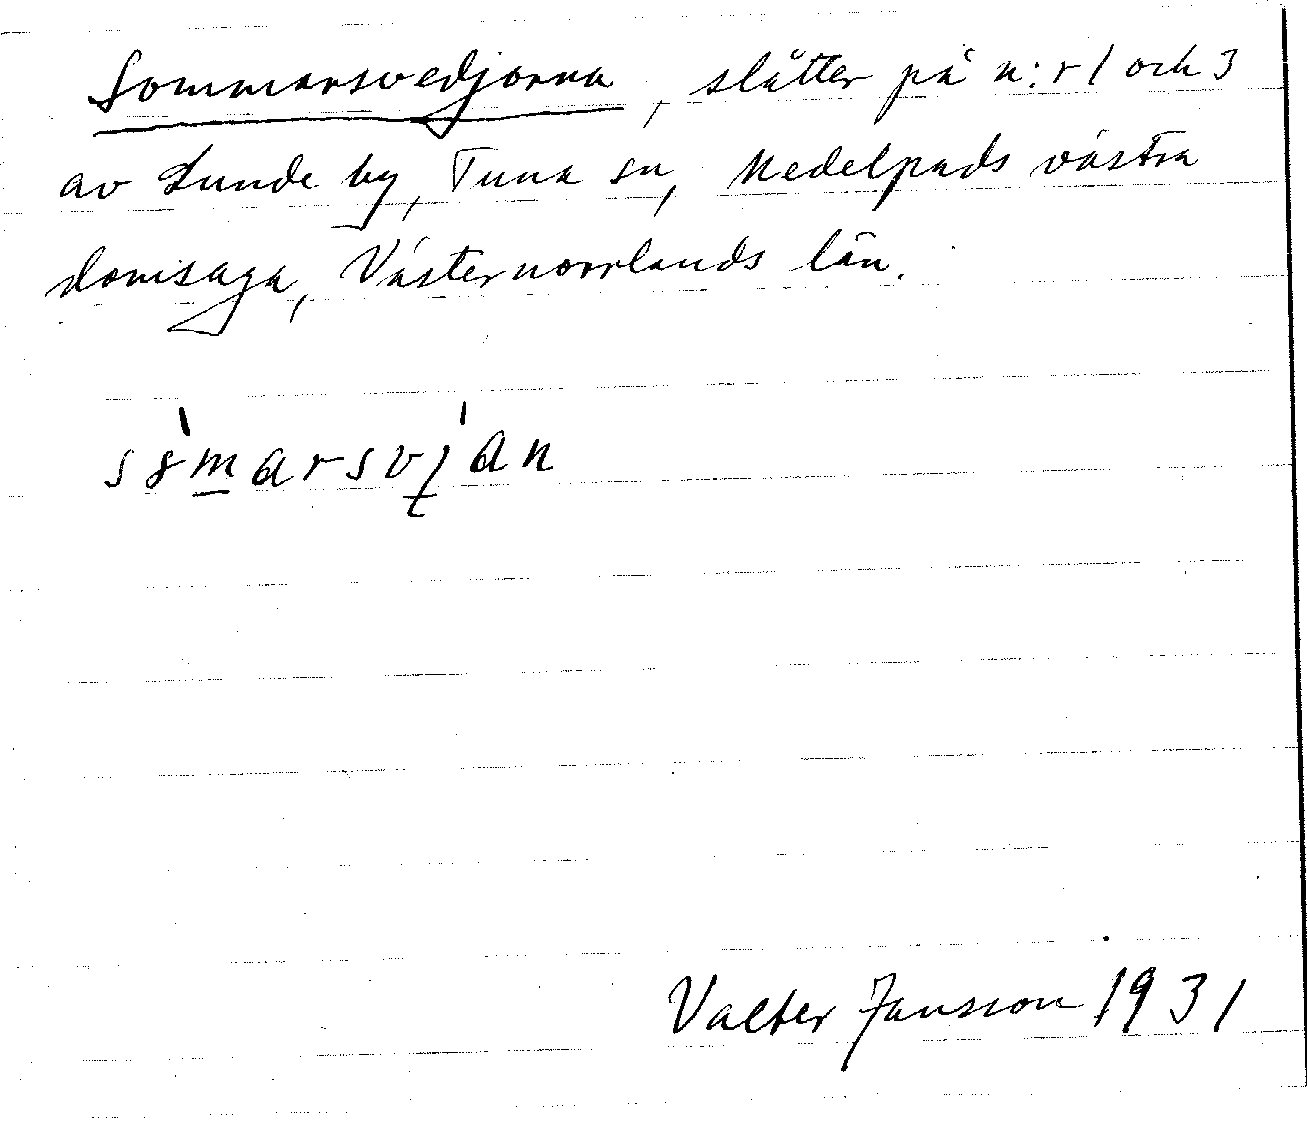 Sommarsvedjorna, slåtter på n:r 1 och 3
av Lunde by, Tuna sn, Medelpads västra
domsaga, Västernorrlands län.
Valter Jansson 1931